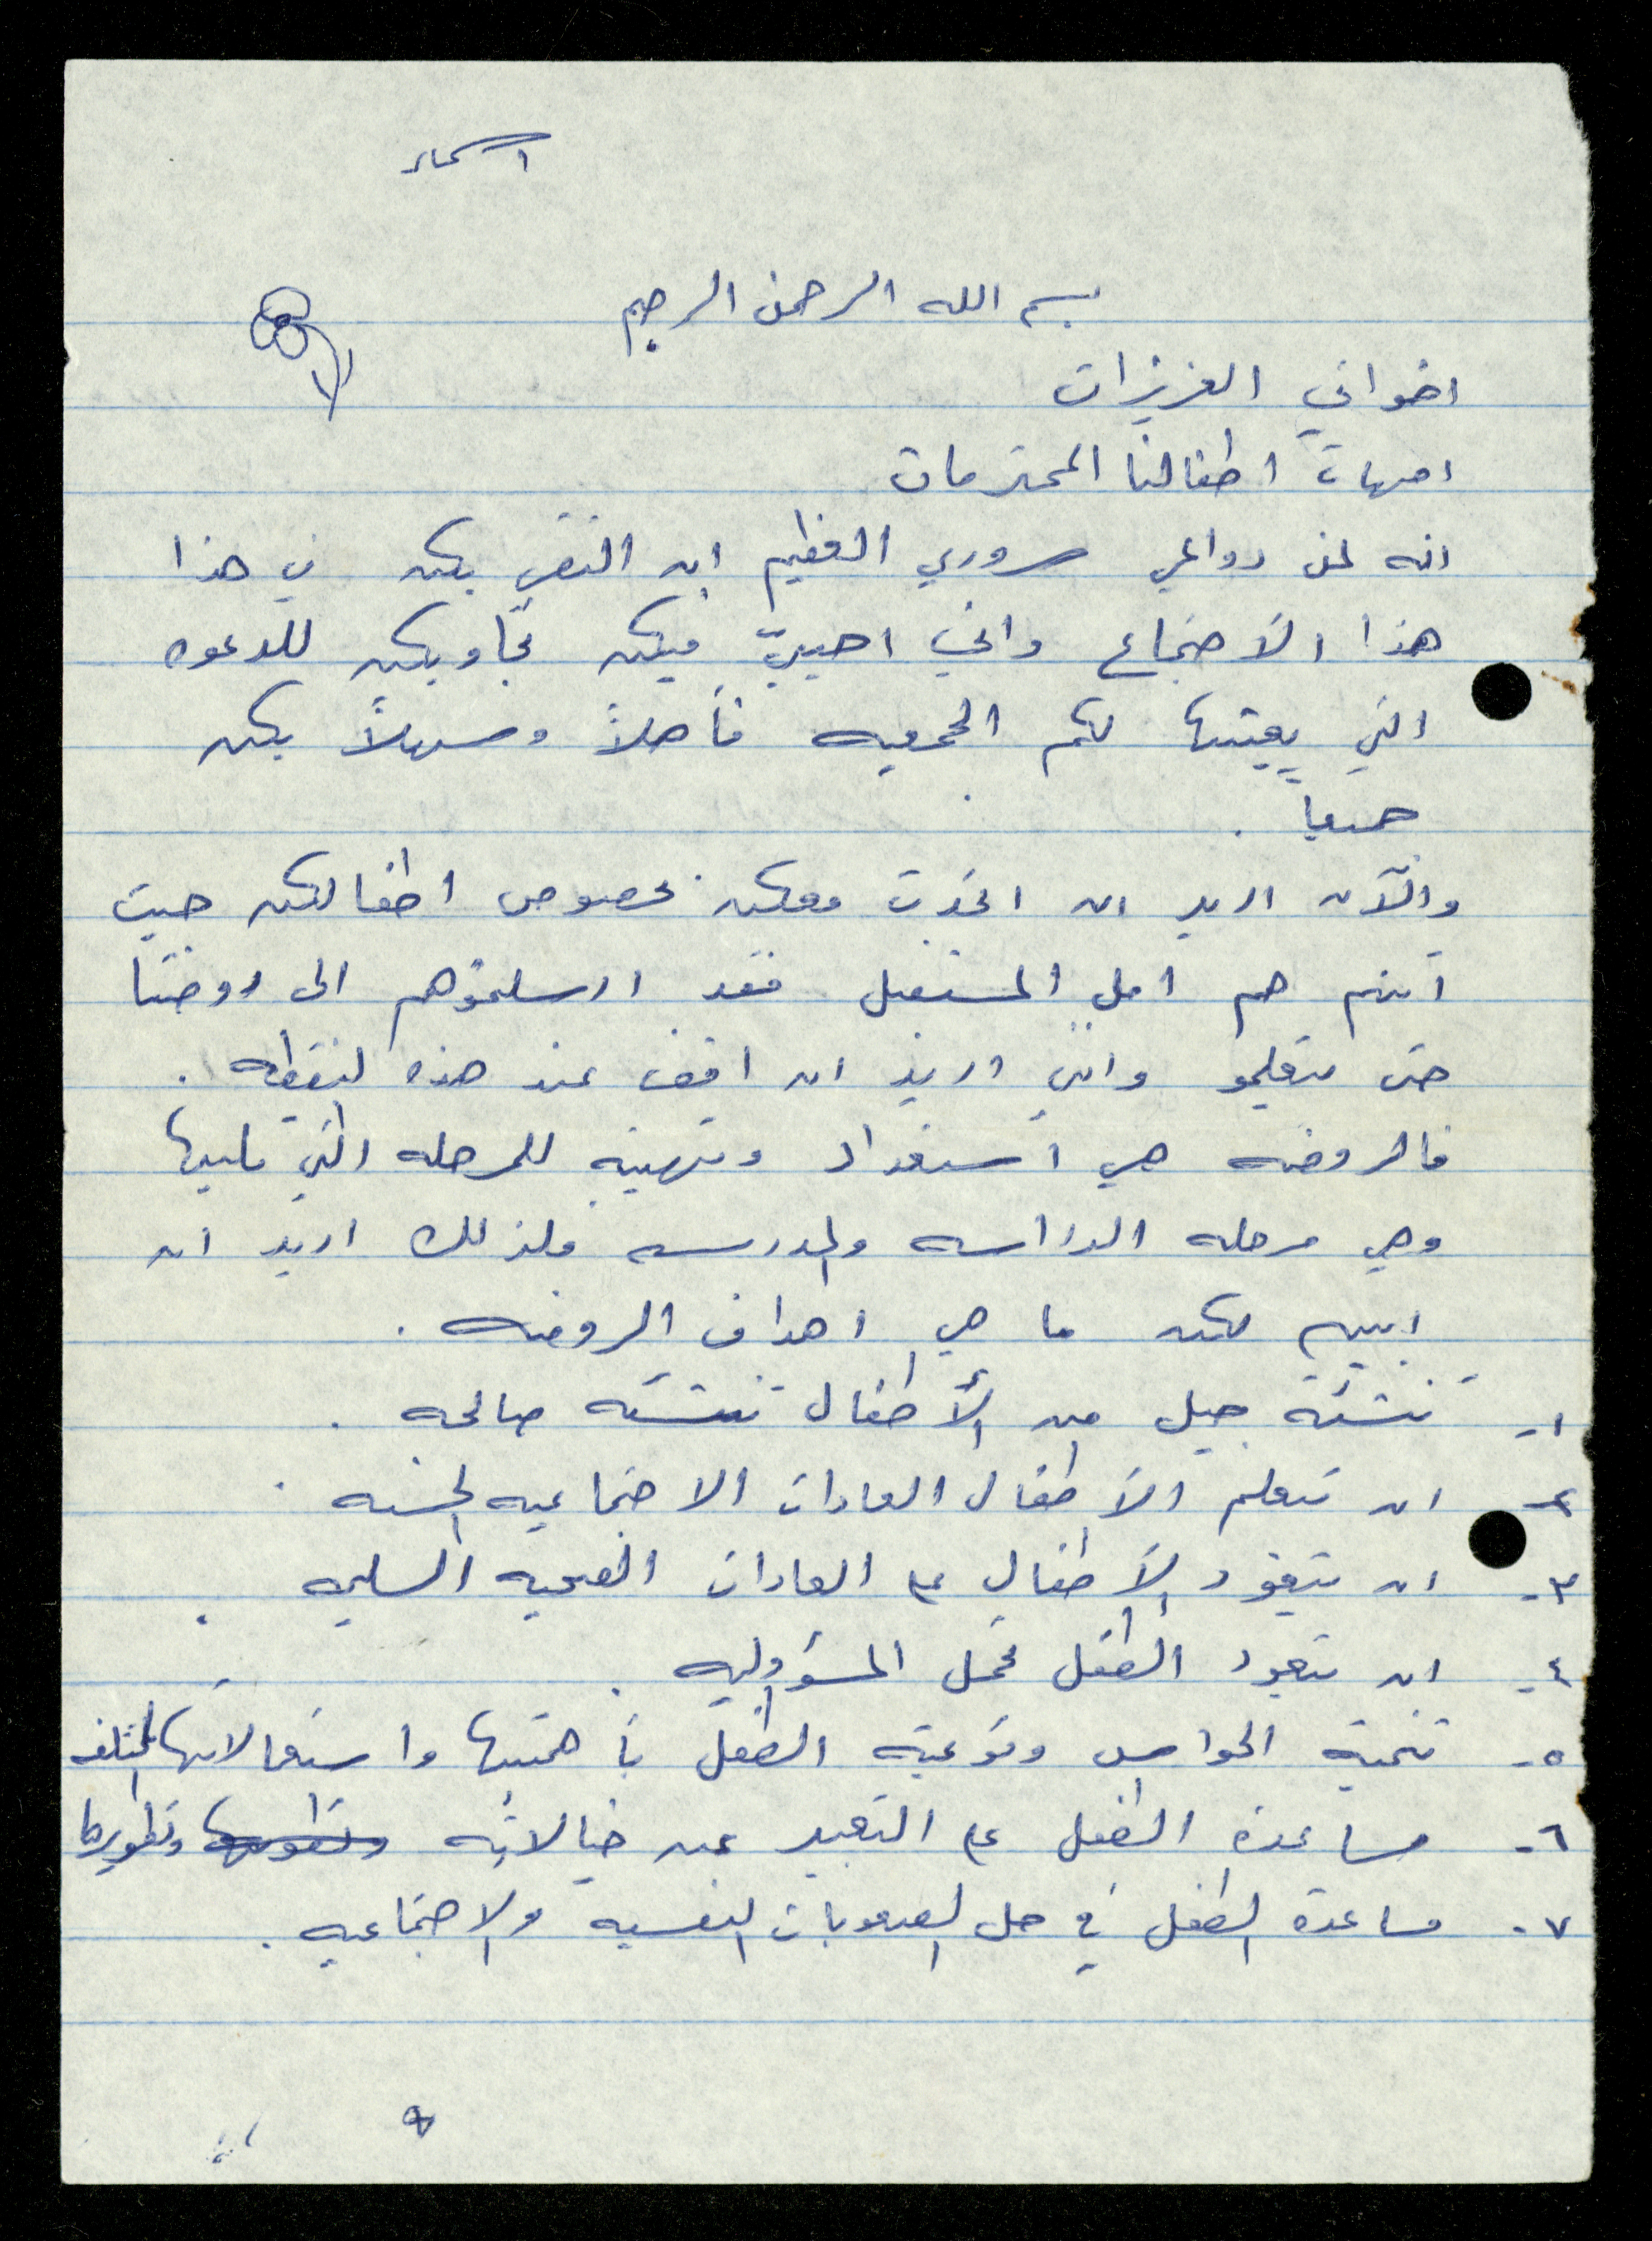 اسماء
بسم الله الرحمن الرحيم
اخواتي العزيزات
امهات اطفالنا المحترمات
انه لمن دواعي سروري العظيم ان التقي بكن في هذا
هذا الأجتماع واني احييّ فيكن تجاوبكن للدعوه
التي بعثتها لكم الجمعيه فأهلاً وسهلاً بكن
جميعاً .
والآن اريد ان اتحدث معكن بخصوص اطفالكن حيث
أنهم هم امل المستقبل فقد ارسلتموهم الى روضتنا
حتى يتعلمو وانني اريد ان اقف عند هذه النقطه .
فالروضه هي أستعداد وتهيئه للمرحله التي تليها
وهي مرحله الدراسه والمدرسه ولذلك اريد ان
ابين لكن ما هي اهداف الروضه .
١- تنشئة جيل من الأطفال تنشئه صالحه .
٢- ان يتعلم الأطفال العادات الاجتماعيه الحسنه .
٣- ان يتعود الأطفال على العادات الصحيه السليمه .
٤- ان يتعود الطفل تحمل المسؤوليه .
٥- تنمية الحواس وتوعية الطفل بأهميتها واستعمالاتها المختلفه
٦- مساعدة الطفل على التعبير عن خيالاته وتطويرها وتطويرها
٧- مساعدة الطفل في حل الصعوبات النفسيه والاجتماعيه .